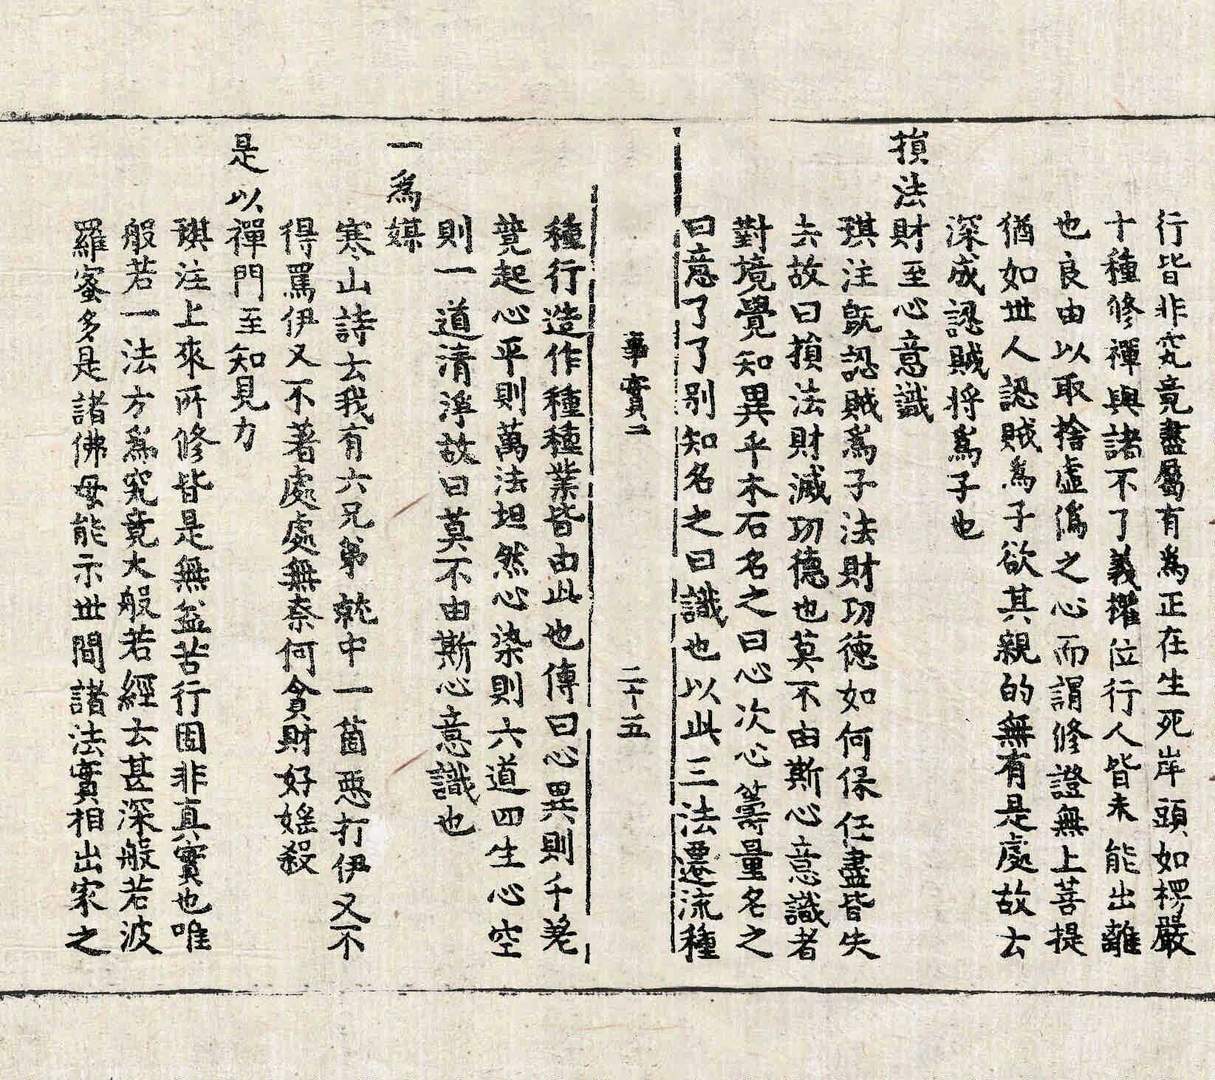 行皆非究竟盡屬有為正在生死岸頭如楞嚴
十種修禪與諸不了義擢位行人皆未能出離
也良由以取捨虛偽之心而謂修證無上菩提
猶如世人認賊為子欲其親的無有是處故云
深成認賊將為子也
損法財至心意識
琪注既認賊為子法財功德如何保任盡皆失
去故曰損法財滅功德也莫不由斯心意識者
對境覺知異乎木石名之曰心次心籌量名之
曰意了了別知名之曰識也以此三法遷流種
事實二 二十五
種行造作種種業皆由此也傳曰心異則千差
競起心平則萬法坦然心染則六道四生心空
則一道清淨故曰莫不由斯心意識也
一為媒
寒山詩云我有六兄弟就中一箇惡打伊又不
得罵伊又不著處處無奈何貪財好婬殺
是以禪門至知見力
琪注上來所修皆是無益苦行固非真實也唯
般若一法方為究竟大般若經云甚深般若波
羅蜜多是諸佛母能示世間諸法實相出家之